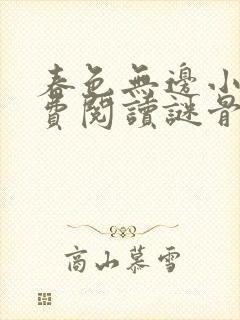 春色無邊小
費閱讀謎骨
高山慕雪